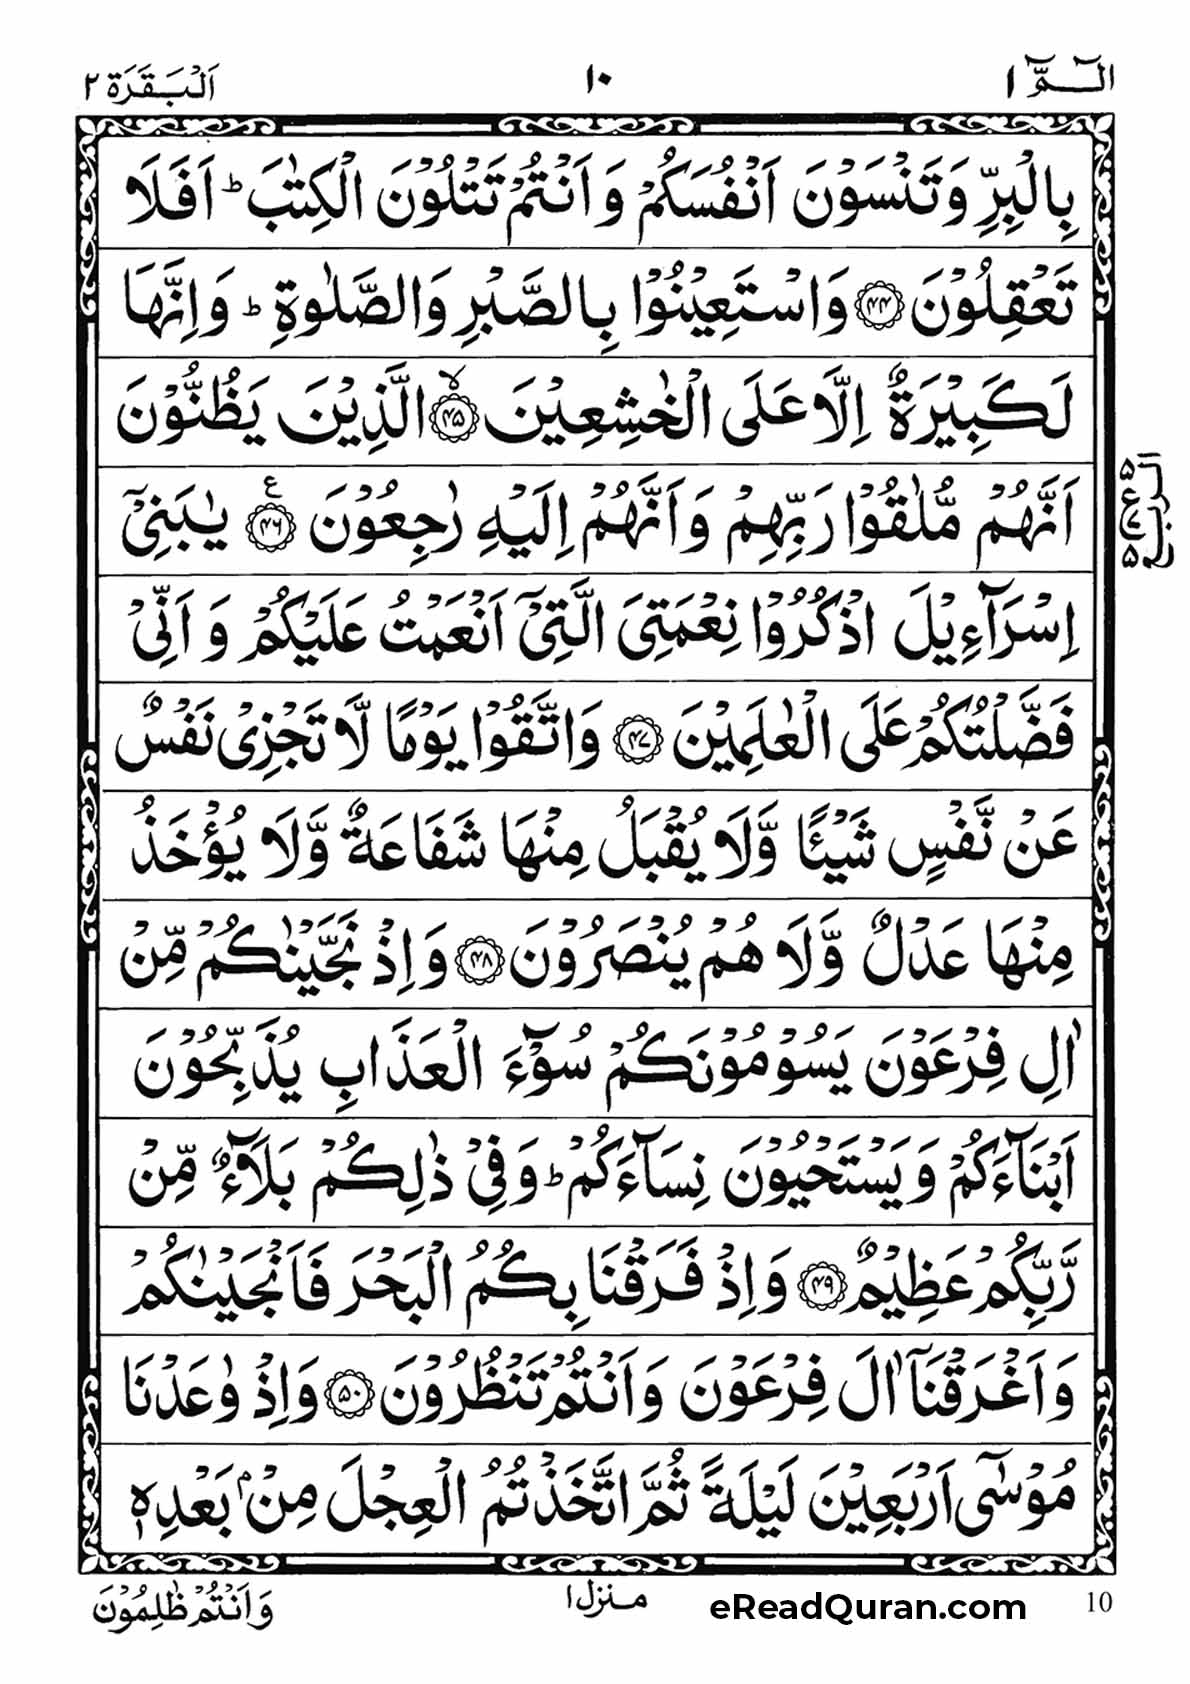 الٓـمّٓ ١ ١٠ اَلْبَقَرَة ٢
بِالْبِرِّ وَتَنْسَوْنَ اَنْفُسَكُمْ وَاَنْتُمْ تَتْلُوْنَ الْكِتٰبَ ؕ اَفَلَا
تَعْقِلُوْنَ ۝۴۴ وَاسْتَعِيْنُوْا بِالصَّبْرِ وَالصَّلٰوةِ ؕ وَاِنَّهَا
لَكَبِيْرَةٌ اِلَّا عَلَى الْخٰشِعِيْنَ ۝۴۵ۙ الَّذِيْنَ يَظُنُّوْنَ
اَنَّهُمْ مُّلٰقُوْا رَبِّهِمْ وَاَنَّهُمْ اِلَيْهِ رٰجِعُوْنَ ۝۴۶ ع يٰبَنِيْٓ
الربع ٥ ع ٥
اِسْرَآءِيْلَ اذْكُرُوْا نِعْمَتِيَ الَّتِيْٓ اَنْعَمْتُ عَلَيْكُمْ وَ اَنِّيْ
فَضَّلْتُكُمْ عَلَى الْعٰلَمِيْنَ ۝۴۷ وَاتَّقُوْا يَوْمًا لَّا تَجْزِيْ نَفْسٌ
عَنْ نَّفْسٍ شَيْـًٔا وَّلَا يُقْبَلُ مِنْهَا شَفَاعَةٌ وَّلَا يُؤْخَذُ
مِنْهَا عَدْلٌ وَّلَا هُمْ يُنْصَرُوْنَ ۝۴۸ وَاِذْ نَجَّيْنٰكُمْ مِّنْ
اٰلِ فِرْعَوْنَ يَسُوْمُوْنَكُمْ سُوْٓءَ الْعَذَابِ يُذَبِّحُوْنَ
اَبْنَآءَكُمْ وَيَسْتَحْيُوْنَ نِسَآءَكُمْ ؕ وَفِيْ ذٰلِكُمْ بَلَآءٌ مِّنْ
رَّبِّكُمْ عَظِيْمٌ ۝۴۹ وَاِذْ فَرَقْنَا بِكُمُ الْبَحْرَ فَاَنْجَيْنٰكُمْ
وَاَغْرَقْنَآ اٰلَ فِرْعَوْنَ وَاَنْتُمْ تَنْظُرُوْنَ ۝۵۰ وَاِذْ وٰعَدْنَا
مُوْسٰٓى اَرْبَعِيْنَ لَيْلَةً ثُمَّ اتَّخَذْتُمُ الْعِجْلَ مِنْۢ بَعْدِهٖ
وَاَنْتُمْ ظٰلِمُوْنَ منزل ١ eReadQuran.com 10